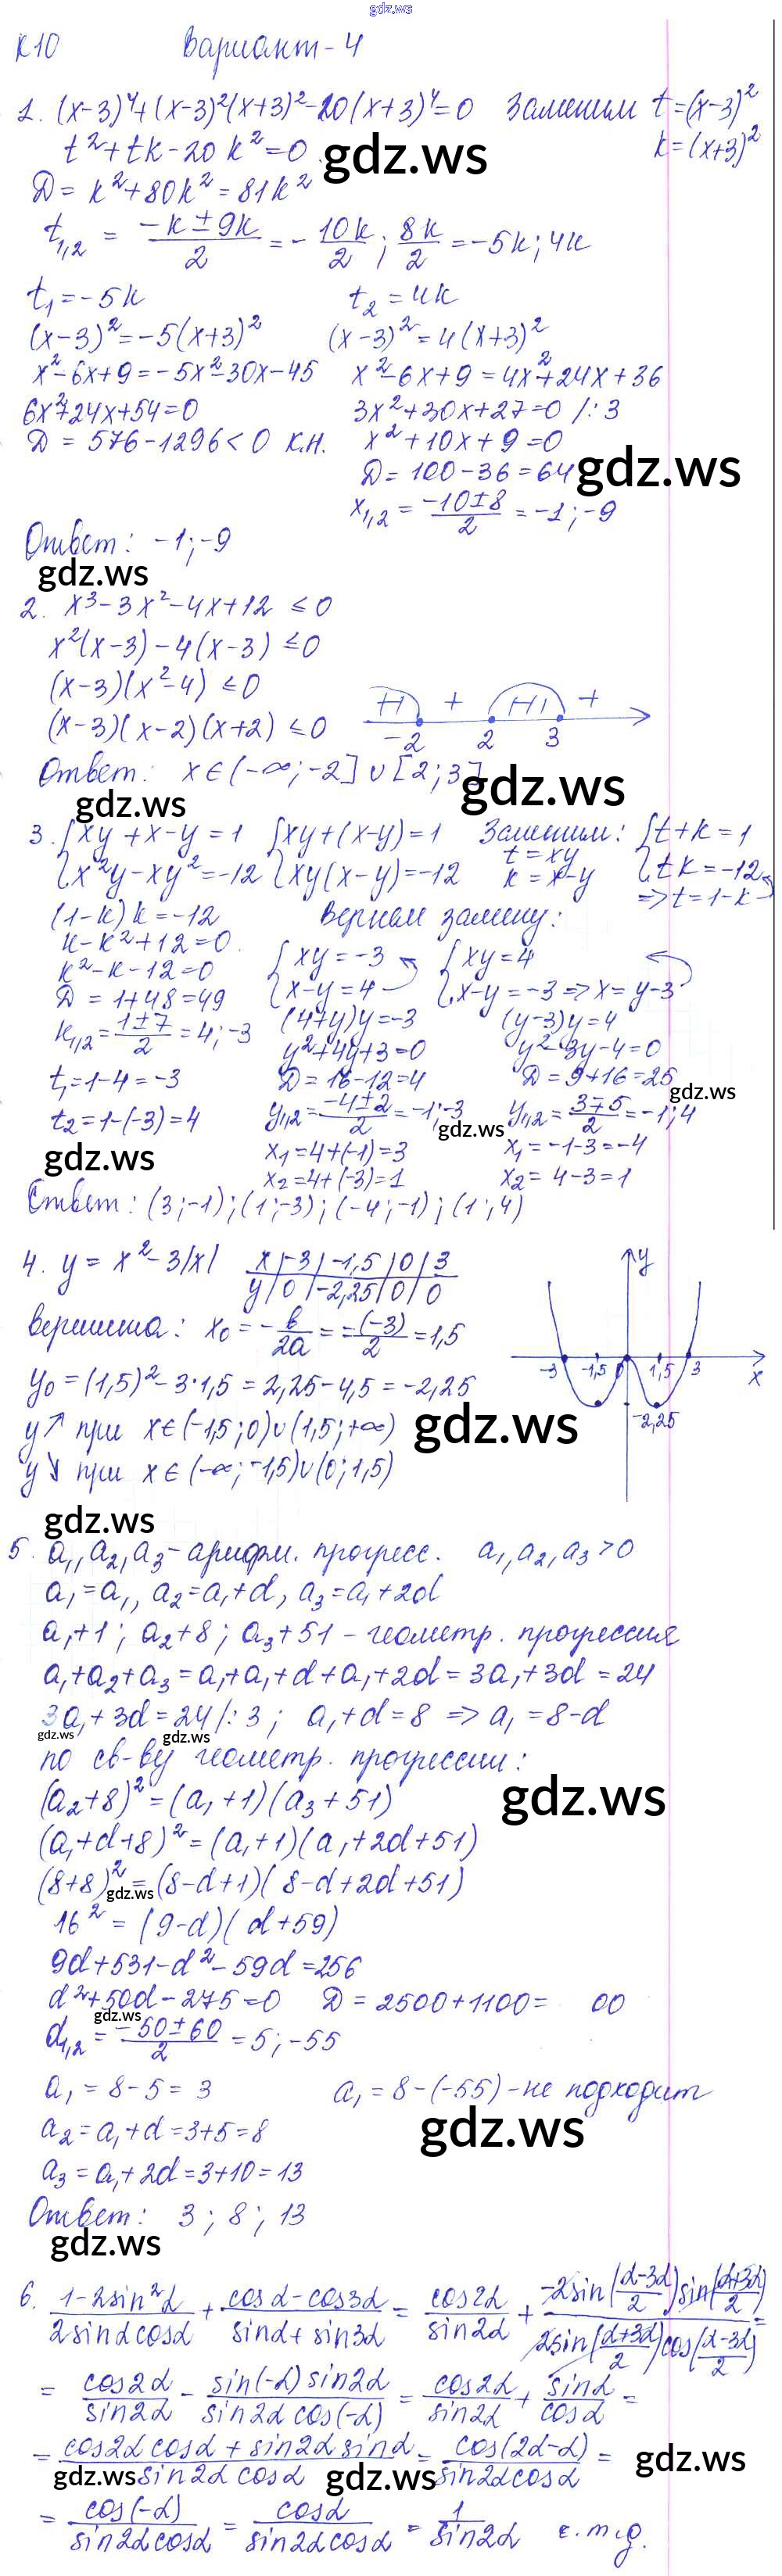 gdz.ws
К10 Вариант-4
1. (x-3)⁴+(x-3)²(x+3)²-20(x+3)⁴=0 Заменим t=(x-3)²
k=(x+3)²
t²+tk-20k²=0 gdz.ws
Д=k²+80k²=81k²
t₁,₂ = (-k±9k)/2 = -10k/2; 8k/2 = -5k; 4k
t₁=-5k t₂=4k
(x-3)²=-5(x+3)² (x-3)²=4(x+3)²
x²-6x+9=-5x²-30x-45 x²-6x+9=4x²+24x+36
6x²+24x+54=0 3x²+30x+27=0 /:3
Д=576-1296<0 к.н. x²+10x+9=0
Д=100-36=64 gdz.ws
x₁,₂ = (-10±8)/2 = -1; -9
Ответ: -1; -9
gdz.ws
2. x³-3x²-4x+12 ≤0
x²(x-3)-4(x-3) ≤0
(x-3)(x²-4) ≤0
(x-3)(x-2)(x+2) ≤0 + +
-2 2 3
Ответ: x∈(-∞;-2]∪[2;3] gdz.ws
gdz.ws
3. {xy+x-y=1 {xy+(x-y)=1 Заменим: {t+k=1
{x²y-xy²=-12 {xy(x-y)=-12 t=xy k=x-y {tk=-12
=>t=1-k
(1-k)k=-12 Вернем замену:
k-k²+12=0
k²-k-12=0 {xy=-3 {xy=4
Д=1+48=49 {x-y=4 {x-y=-3=>x=y-3
k₁,₂=(1±7)/2=4;-3 (4+y)y=-3 (y-3)y=4
y²+4y+3=0 y²-3y-4=0
t₁=1-4=-3 Д=16-12=4 Д=9+16=25 gdz.ws
t₂=1-(-3)=4 y₁,₂=(-4±2)/2=-1;-3 gdz.ws y₁,₂=(3∓5)/2=-1;4
gdz.ws x₁=4+(-1)=3 x₁=-1-3=-4
x₂=4+(-3)=1 x₂=4-3=1
Ответ: (3;-1);(1;-3);(-4;-1);(1;4)
4. y=x²-3|x| x|-3|-1,5|0|3
y|0|-2,25|0|0
y
вершина: x₀=-b/2a=-(-3)/2=1,5
-3 -1,5 0 1,5 3 x
y₀=(1,5)²-3·1,5=2,25-4,5=-2,25
-2,25
y↗ при x∈(-1,5;0)∪(1,5;+∞) gdz.ws
y↘ при x∈(-∞;-1,5)∪(0;1,5)
gdz.ws
5. a₁,a₂,a₃-арифм. прогресс. a₁,a₂,a₃>0
a₁=a₁, a₂=a₁+d, a₃=a₁+2d
a₁+1; a₂+8; a₃+51 - геометр. прогрессия
a₁+a₂+a₃=a₁+a₁+d+a₁+2d=3a₁+3d=24
3a₁+3d=24/:3; a₁+d=8 => a₁=8-d
gdz.ws gdz.ws
по св-ву геометр. прогрессии:
(a₂+8)²=(a₁+1)(a₃+51) gdz.ws
(a₁+d+8)²=(a₁+1)(a₁+2d+51)
(8+8)²=(8-d+1)(8-d+2d+51)
gdz.ws
16²=(9-d)(d+59)
9d+531-d²-59d=256
d²+50d-275=0 Д=2500+1100= 00
gdz.ws
d₁,₂=(-50±60)/2=5;-55
a₁=8-5=3 a₁=8-(-55)-не подходит
a₂=a₁+d=3+5=8 gdz.ws
a₃=a₁+2d=3+10=13
Ответ: 3; 8; 13
gdz.ws
6. (1-2sin²α)/(2sinαcosα) + (cosα-cos3α)/(sinα+sin3α) = cos2α/sin2α + (-2sin((α-3α)/2)sin((α+3α)/2))/(2sin((α+3α)/2)cos((α-3α)/2)) =
= cos2α/sin2α - (sin(-α)sin2α)/(sin2αcos(-α)) = cos2α/sin2α + sinα/cosα =
= (cos2αcosα+sin2αsinα)/(sin2αcosα) = cos(2α-α)/(sin2αcosα) = gdz.ws
gdz.ws gdz.ws
= cos(-α)/(sin2αcosα) = cosα/(sin2αcosα) = 1/sin2α ч.т.д.